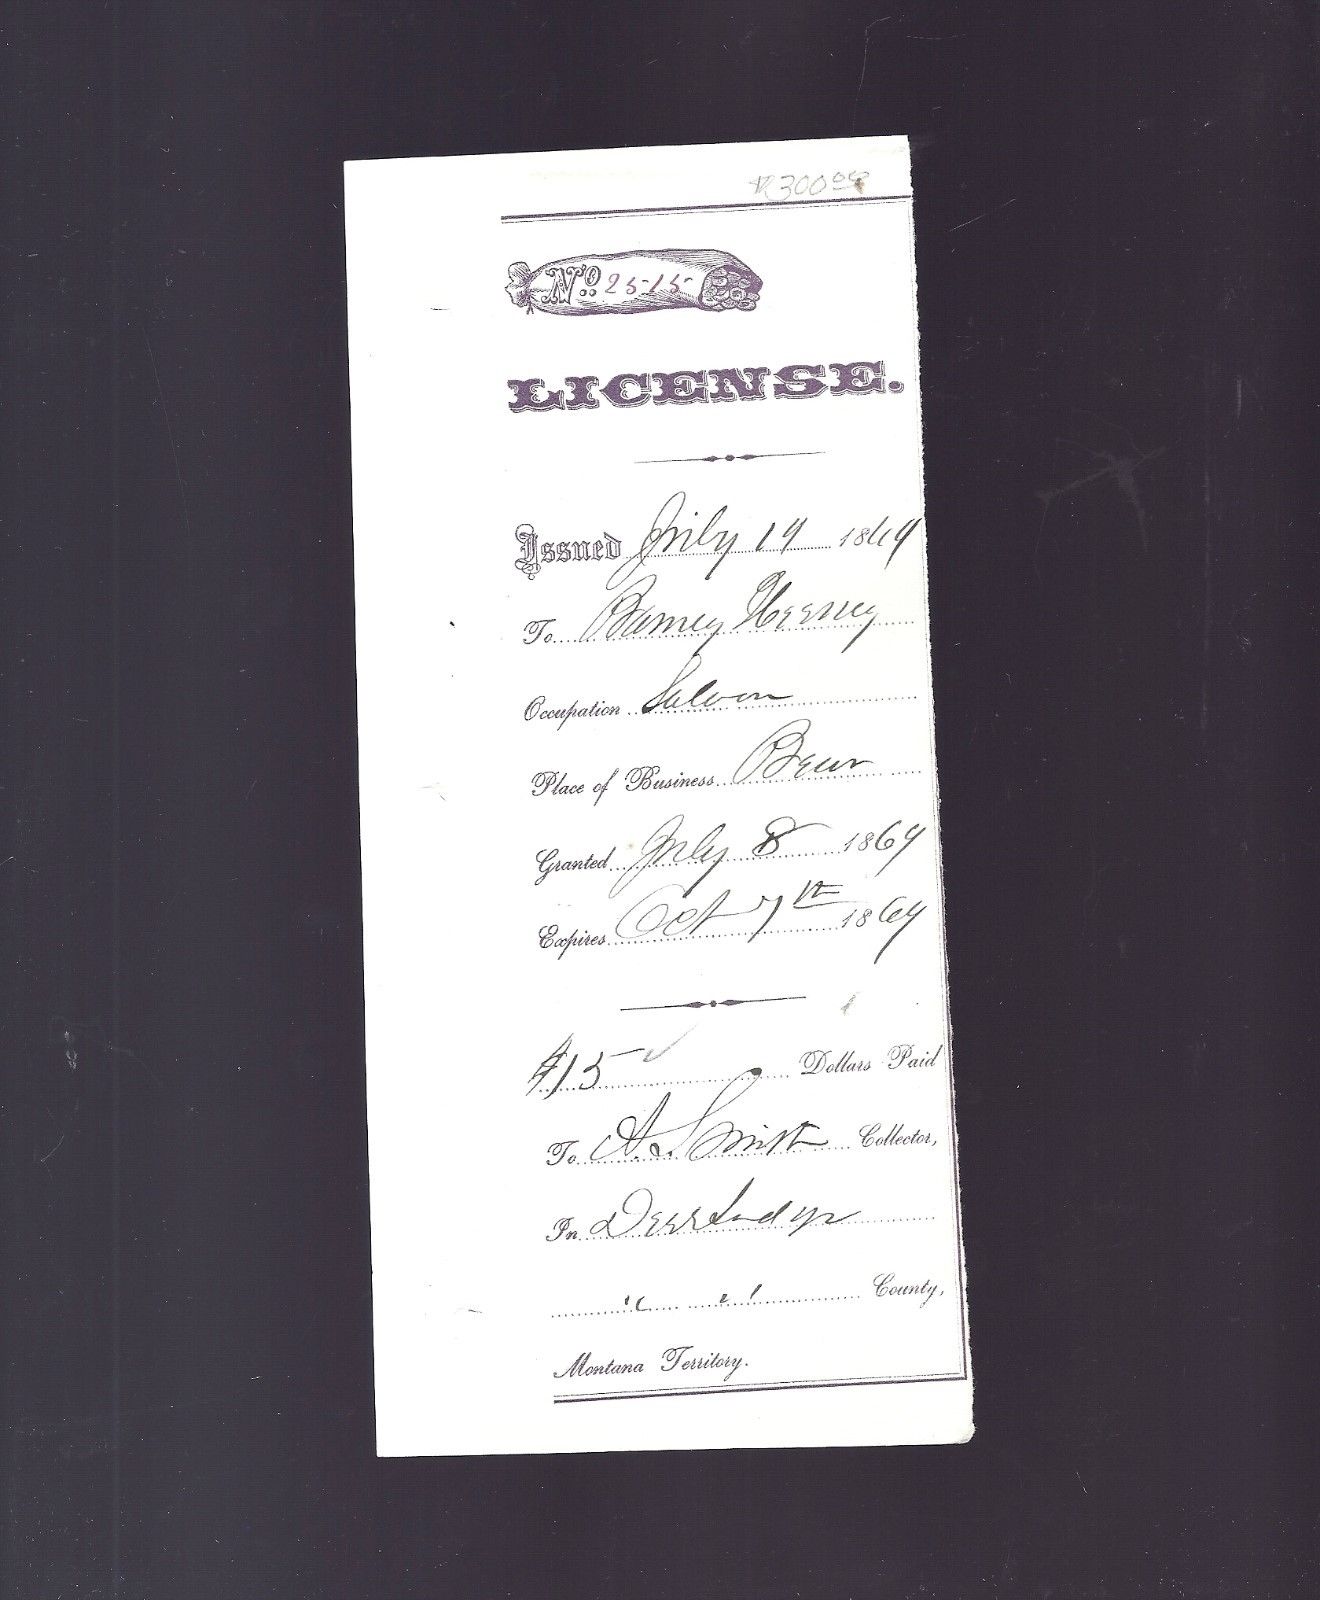 300.00
No. 2515
LICENSE.
Issued July 19 1869
To Barney
Occupation Saloon
Place of Business Bear
Granted July 8 1869
Expires Oct 7th 1869
$15 Dollars Paid
To A. L. Smith Collector,
In Deer Lodge
" " County,
Montana Territory.